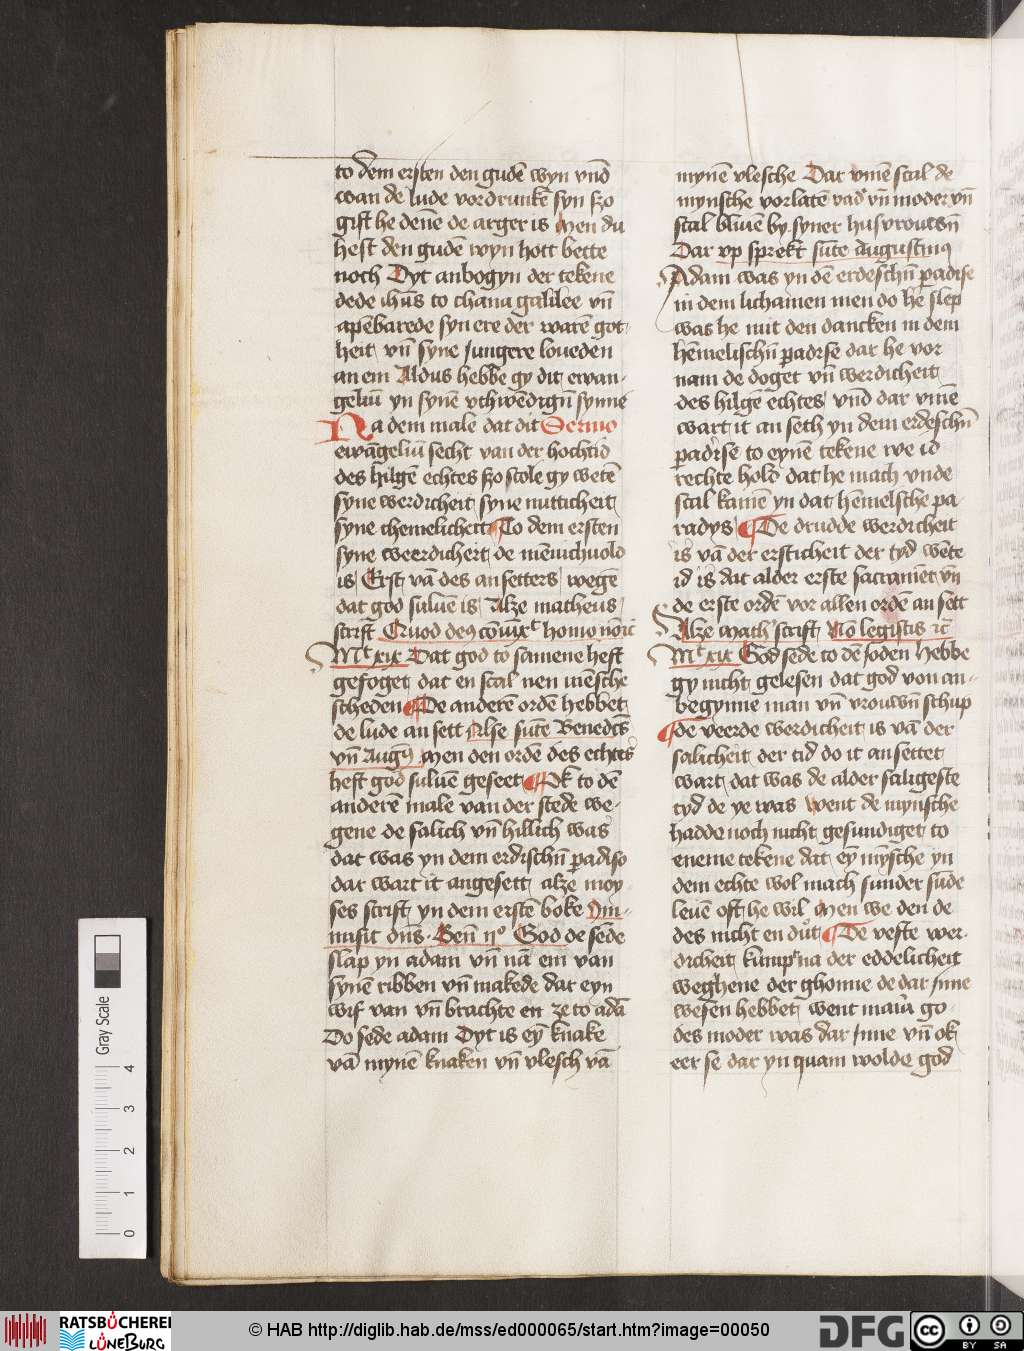 to dem ersten den gudē wyn vnd̄
wan de lude vordrunkē syn szo
gift he denē de arger is Men du
hest den gudē wyn hott bette
noch Dyt anbogyn der tekene
dede ih̄us to chana galilee vn̄
apēbarede syn ere der warē got
heit vn̄ syne Jungere loueden
an em Aldus hebbe gy dit ewan-
geliū yn synē vthwēdign̄ synne
Na dem male dat dit Sermo
ewāgeliū secht van der hochtid
des hilgē echtes szo scole gy wetē
syne werdicheit syne nutticheit
syne themelicheit To dem ersten
syne weerdicheit de mēnichuold
is Erst vā des ansetters wegē
dat god suluē is Alze matheus
scrift Quod deꝯ
Mt xix Dat god to samene heft
gefoget dat en scal nen mesche
scheden De anderē ordē hebbet
de lude an sett Alse sūte Benedc̄s
vn̄ Augꝯ Men den ordē des echtes
heft god suluē geseet Ok to dē
anderē male van der stede we-
gene de salich vn̄ hillich was
dat was yn dem erdischn̄ padiso
dar wart it angesett alze moy
ses scrift yn dem erstē boke Im-
misit dn̄s Gen̄ iio God de sēde
slap yn adam vn̄ nā em van
synē ribben vn̄ makede dar eyn
wif van vn̄ brachte en ze to adā
Do sede adam Dyt is ey̅ knake
vā mynē knaken vn̄ vlesch vā
mynē vlesche Dar vmē scal de
mynsche vorlatē vad' vn̄ moder vn̄
scal bliuē by syner husvrouwn̄
Dar vp sprekt sūte Augustinꝯ
Adam was yn dē erdeschn̄ padise
in dem lichamen men do he slep
was he mit den dancken in dem
hēmelischn̄ padise dar he vor
nam de doget vn̄ werdicheit
des hilgē echtes vnd̄ dar vmē
wart it an seth yn dem erdeschn̄
padise to eynē tekene we id
rechte hold dat he mach vnde
scal kamē yn dat hēmelsche pa
radys De drudde werdicheit
is vā der ersticheit der tyd wēte
id is dat alder erste sacramēt vn̄
de erste ordē vor allen ordē an sett
Alze math' scrift No legistis
Mt xix God sede to dē Joden Hebbe
gy nicht gelesen dat god von an-
begynne man vn̄ vrouwn̄ schup
De veerde werdicheit is vā der
salicheit der tid do it an settet
wart dat was de alder saligeste
tyd de ye was Went de mynsche
hadde noch nicht gesundiget to
eneme tekene dat ey̅ my̅sche yn
dem echte wol mach sunder sūde
leuē oft he wil Men we den de
des nicht en dut De vefte wer-
dicheit kumpt na der eddelicheit
weghene der ghonne de dar Jnne
wesen hebbet went maria go
des moder was dar Jnne vn̄ ok
eer se dar yn quam wolde god
Gray Scale
4
3
2
1
0
RATSBÜCHEREI
LÜNEBURG
© HAB http://diglib.hab.de/mss/ed000065/start.htm?image=00050
DFG
CC BY SA